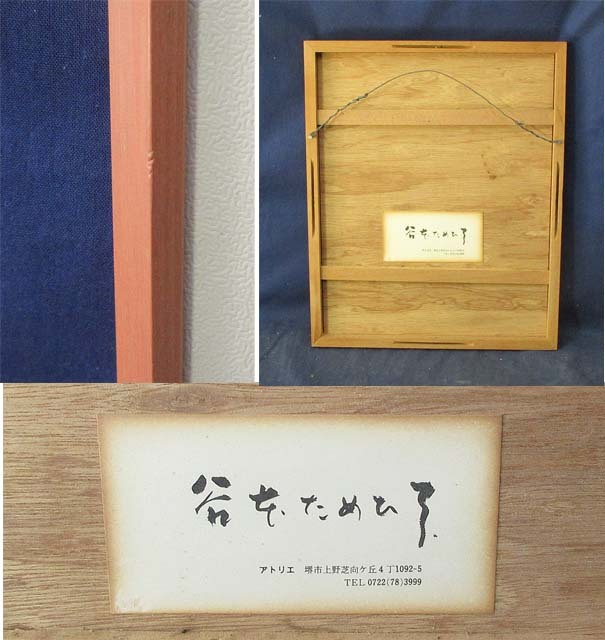 谷本ためひろ
アトリエ 堺市上野芝向ケ丘4丁1092-5
TEL 0722(78)3999